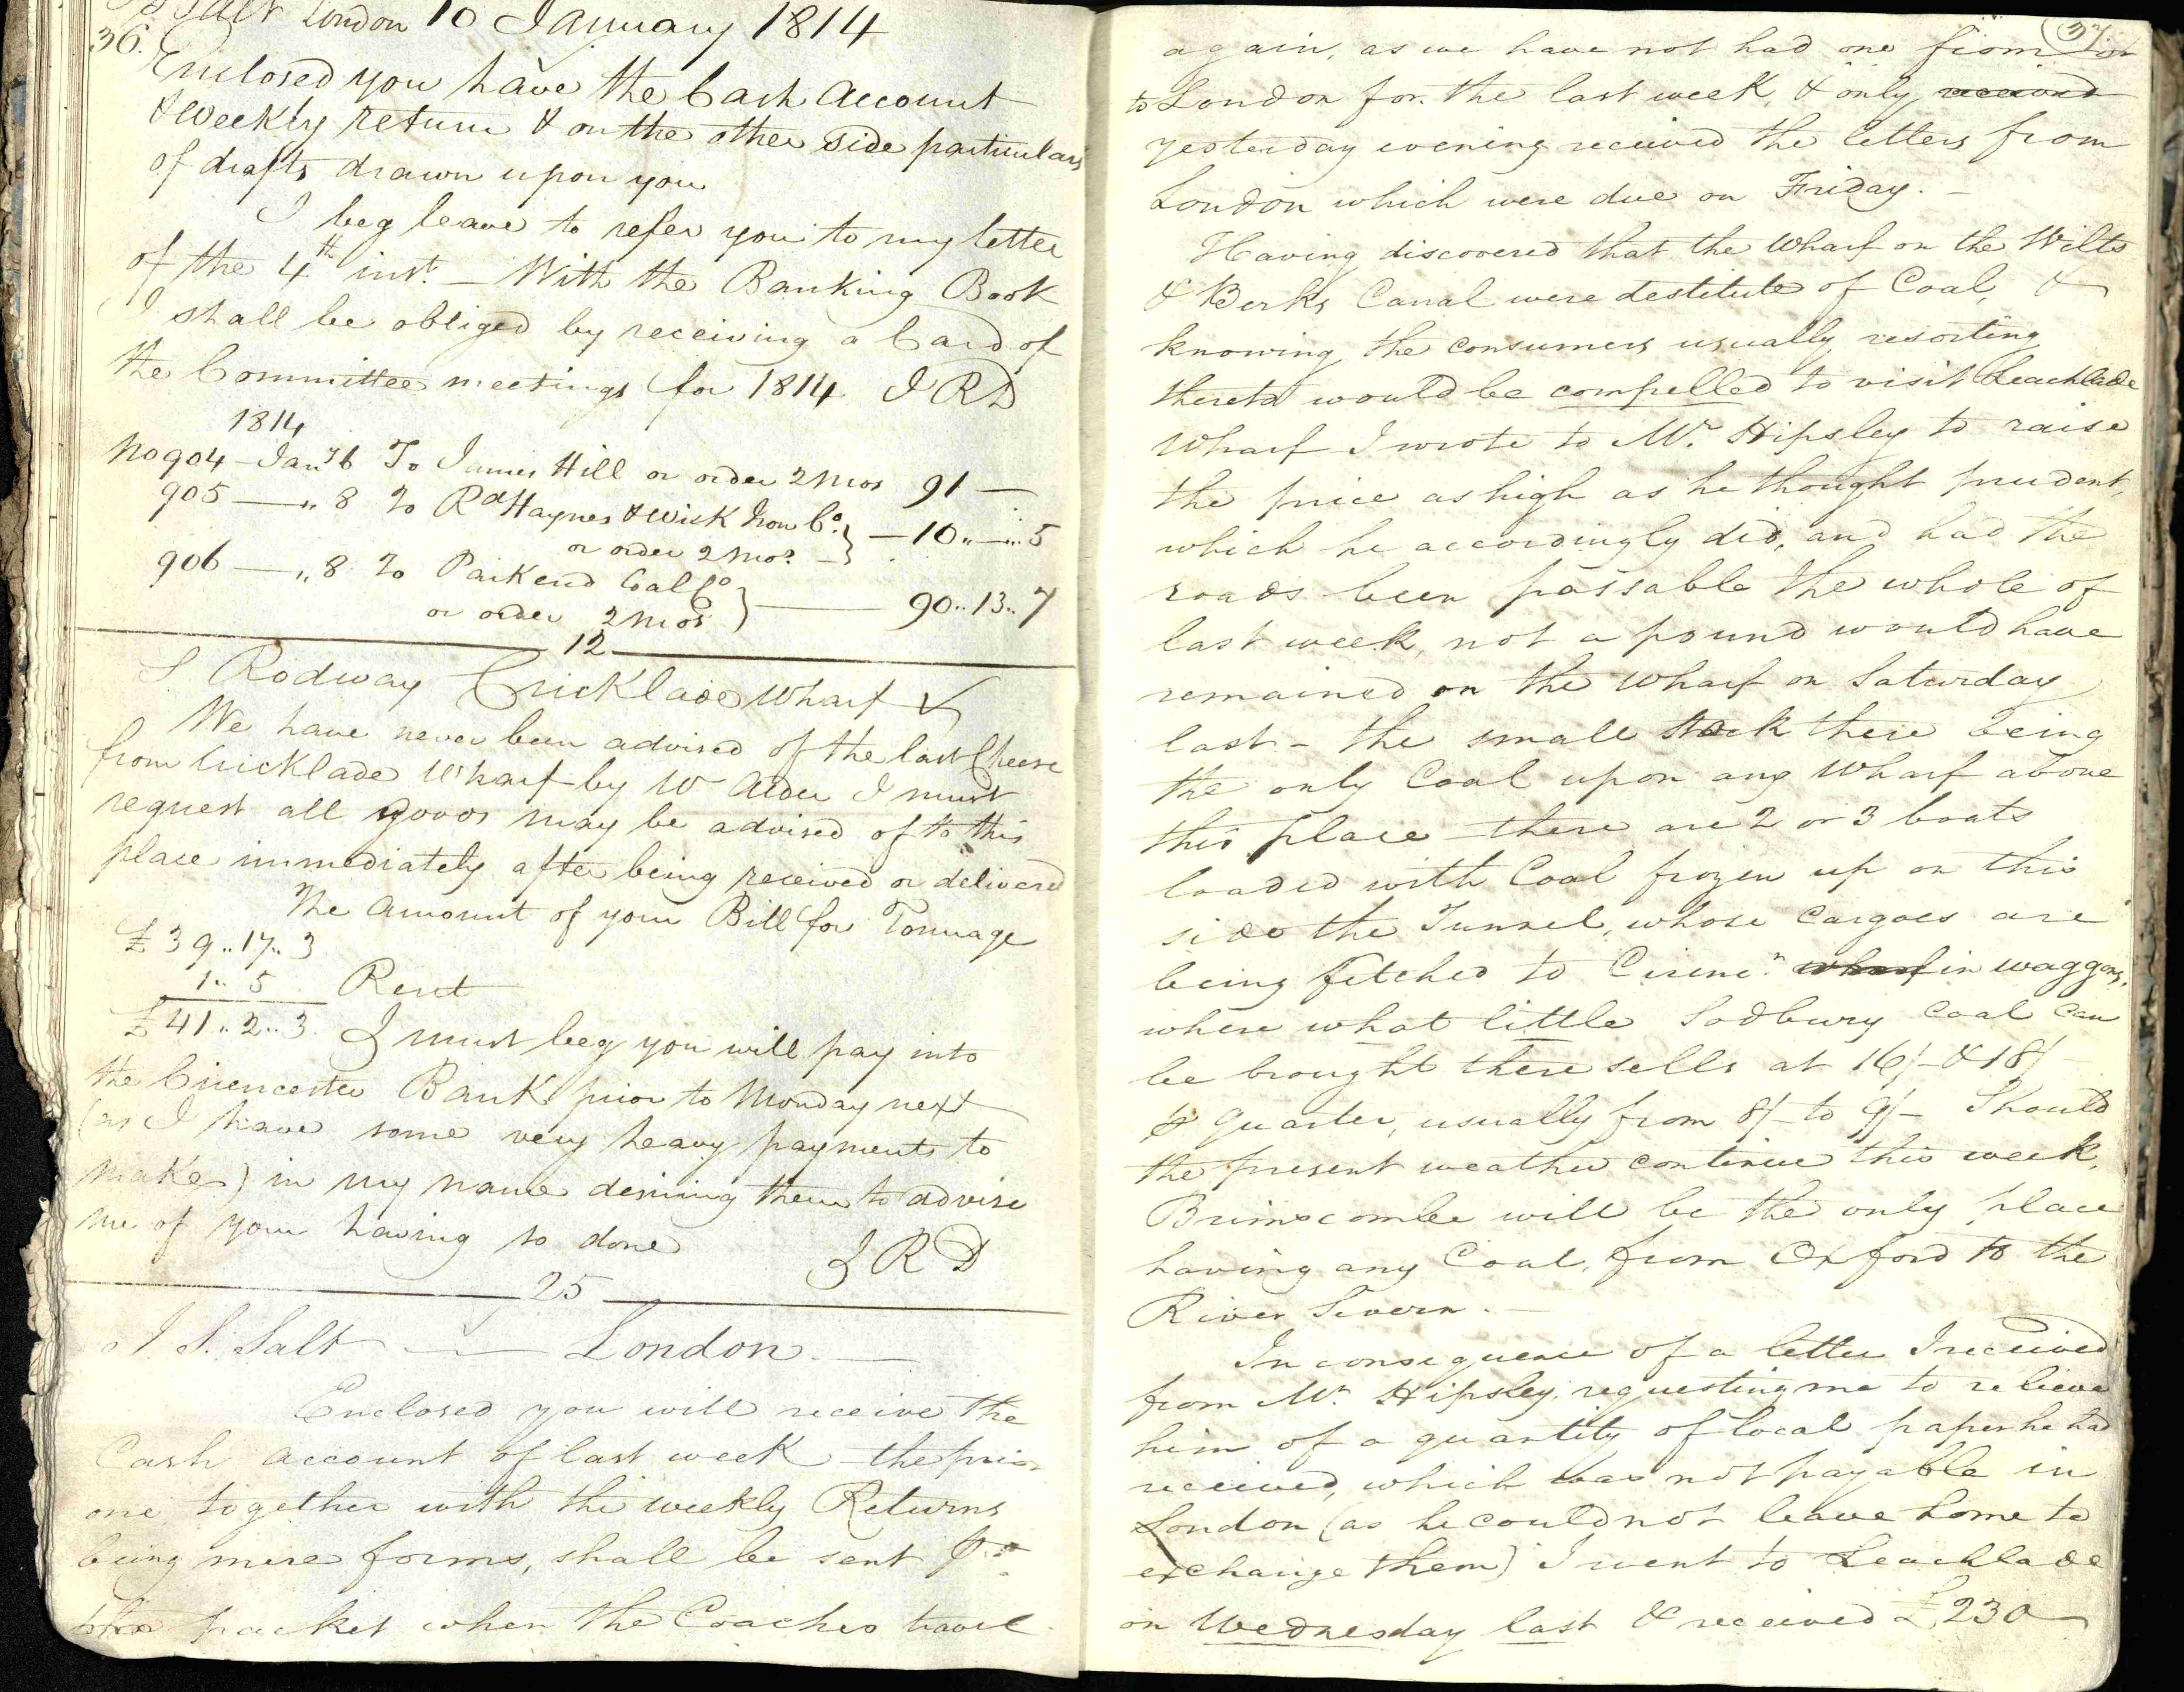 36.
Salt London 10 January 1814
Enclosed you have the Cash Account
& Weekly return & on the other side particulars
of drafts drawn upon you
I beg leave to refer you to my letter
of the 4th inst. — With the Banking Book
I shall be obliged by receiving a Card of
the Committee meetings for 1814 I R D
1814
No 904 — Jany 6 To James Hill or order 2 Mos 91 —
905 — „ 8 To Rd Haynes & Wick Iron Co. } — 10 „ — „ 5
or order 2 mos. —
906 — „ 8 To Parkend Coal Co } — 90 „ 13 „ 7
or order 2 Mos
12
S Rodway Cricklade Wharf ✓
We have never been advised of the last Cheese
from Cricklade Wharf by W Alder I must
request all goods may be advised of to this
place immediately after being received or delivered
The Amount of your Bill for Tonnage
£ 39 „ 17 „ 3
1 „ 5 Rent
£ 41 „ 2 „ 3. I must beg you will pay into
the Cirencester Bank prior to Monday next
(as I have some very heavy payments to
make) in my name desiring them to advise
me of your having so done I R D
25
J. S. Salt — ✓ — London. —
Enclosed you will receive the
Cash Account of last week — the prior
one together with the weekly Returns
being mere forms, shall be sent pr.
packet when the Coaches travel
37
again, as we have not had one from or
to London for the last week, & only received
yesterday evening received the letters from
London which were due on Friday. —
Having discovered that the Wharf on the Wilts
& Berks Canal were destitute of Coal, &
knowing the consumers usually resorting
thereto would be compelled to visit Leachlade
Wharf I wrote to Mr. Hipsley to raise
the price as high as he thought prudent,
which he accordingly did, and had the
roads been passable the whole of
last week, not a pound would have
remained on the Wharf on Saturday
last — the small stock there being
the only Coal upon any Wharf above
this place — there are 2 or 3 boats
loaded with Coal frozen up on this
side the Tunnel, whose Cargoes are
being fetched to Cirenr. wharf in waggons,
where what little Sodbury Coal can
be brought there sells at 16/- & 18/-
⅌ quarter, usually from 8/- to 9/- Should
the present weather continue this week,
Brimscombe will be the only place
having any Coal, from Oxford to the
River Severn. —
In consequence of a letter I received
from Mr. Hipsley, requesting me to relieve
him of a quantity of local paper he had
received, which was not payable in
London (as he could not leave home to
exchange them) I went to Leachlade
on Wednesday last & received £230